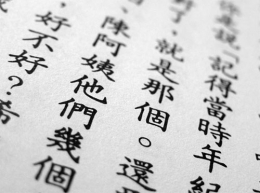 你年說「記得當時年紀
了，就是那個。還
陳阿姨他們幾個
，好不好？希